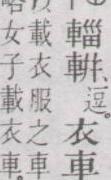 輜軿、逗。衣車
載衣服之車
女子載衣車。